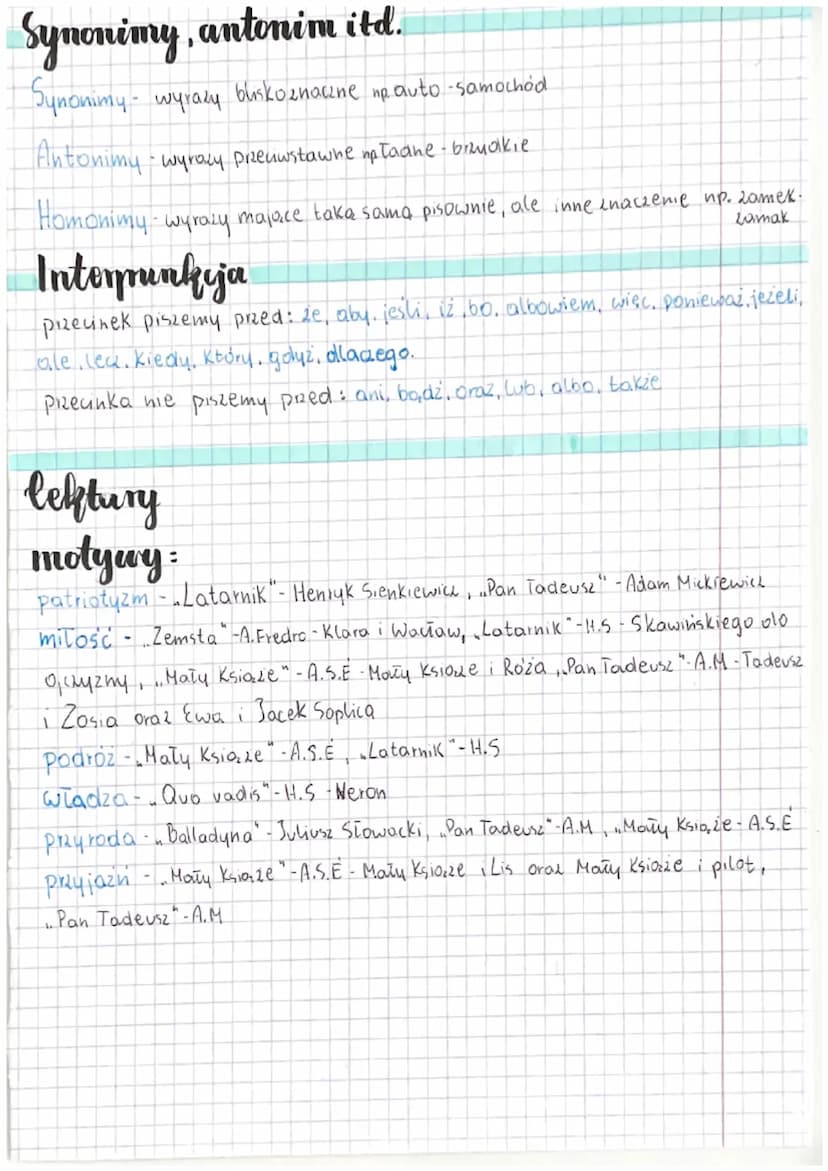 Synonimy, antonim itd.
Synonimy - wyrazy bliskoznaczne np. auto - samochód
Antonimy - wyrazy przeciwstawne np ładne - brzydkie
Homonimy - wyrazy mające taką samą pisownie, ale inne znaczenie np. zamek -
zamak
Interpunkcja
przecinek piszemy przed: że, aby, jeśli, iż, bo, albowiem, więc, ponieważ, jeżeli,
ale, lecz, kiedy, który, gdyż, dlaczego.
przecinka nie piszemy przed: ani, bądź, oraz, lub, albo, także
lektury
motywy:
patriotyzm - „Latarnik" - Henryk Sienkiewicz, „Pan Tadeusz" - Adam Mickiewicz
miłość - „Zemsta" - A. Fredro - Klara i Wacław, „Latarnik" - H.S - Skawińskiego do
Ojczyzny, „Mały Książe" - A.S.É - Mały Książe i Róża, „Pan Tadeusz" - A.M - Tadeusz
i Zosia oraz Ewa i Jacek Soplica
podróż - „Mały Książe" - A.S.É, „Latarnik" - H.S
władza - „Quo vadis" - H.S - Neron
przyroda - „Balladyna" - Juliusz Słowacki, „Pan Tadeusz" - A.M, „Mały Książe - A.S.É
przyjaźń - „Mały Książe" - A.S.É - Mały Książe i Lis oraz Mały Książe i pilot,
„Pan Tadeusz" - A.M